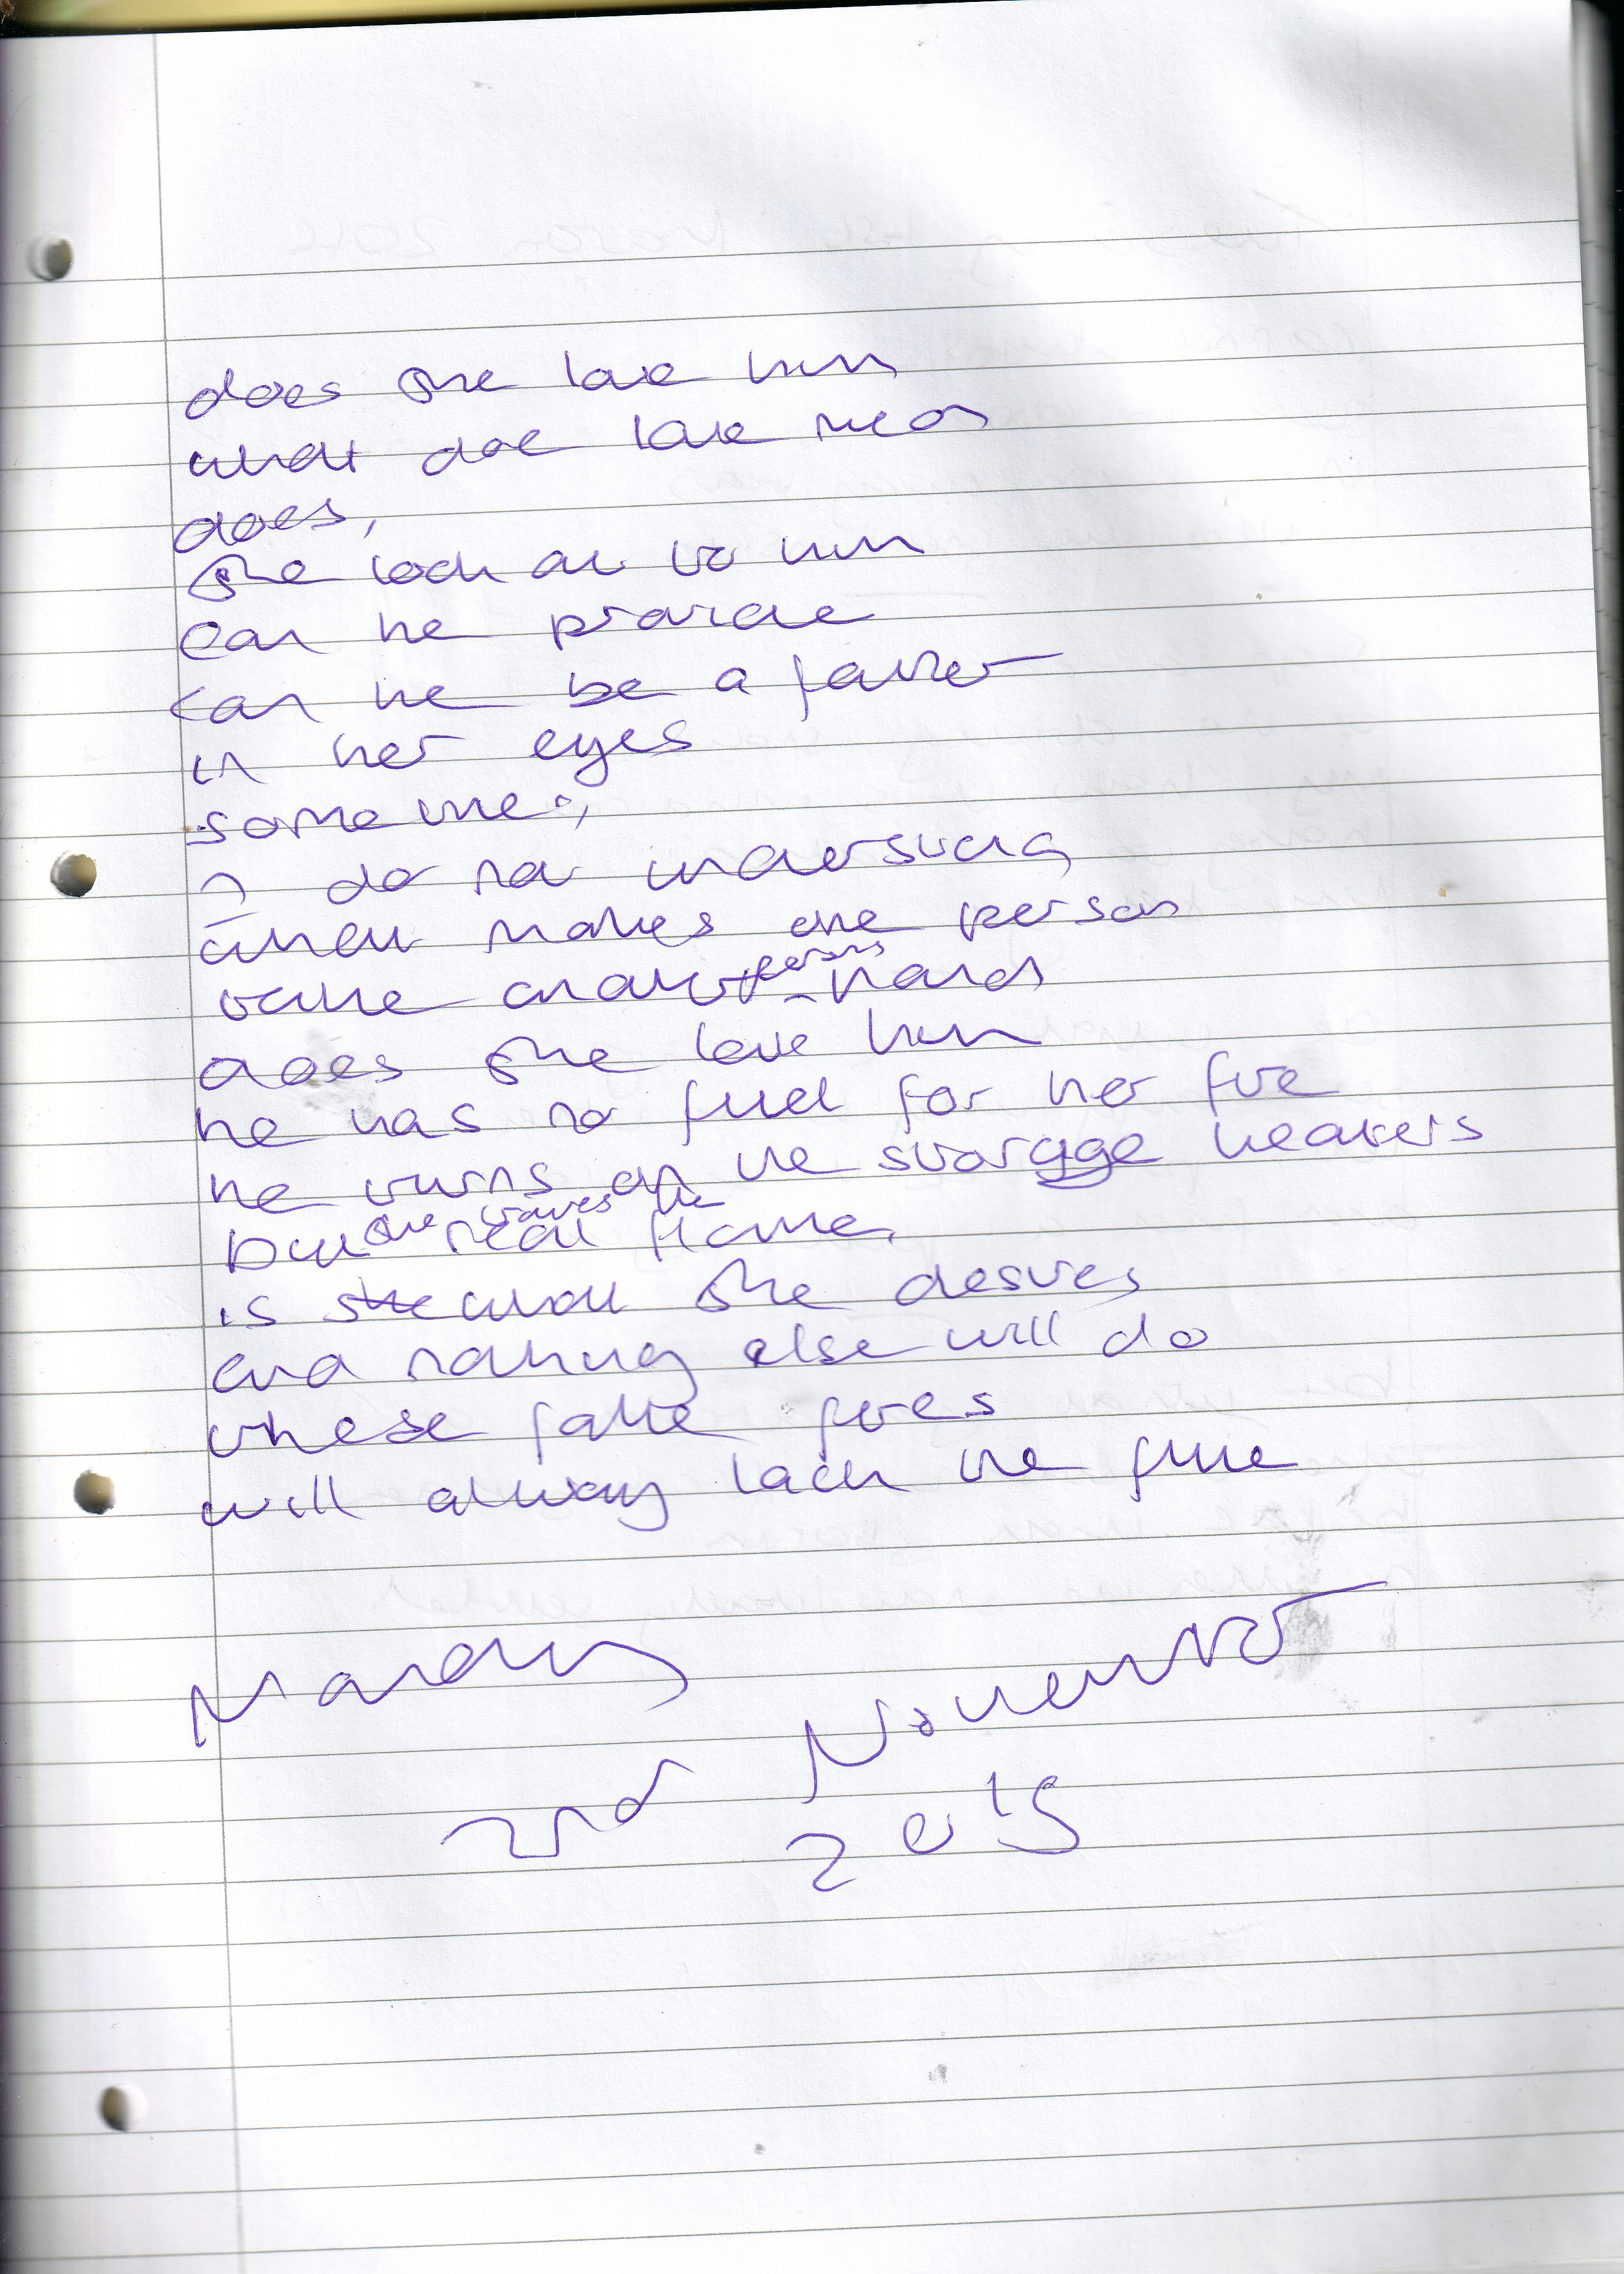 does she love him
what doe love mean
does,
She look at to him
Can he provide
can he be a father
in her eyes
some time.,
I do not understand
what makes one person
take another persons hand
does she love him
he has no fuel for her fire
he turns on the storage heaters
but she craves the real flame,
is she what she desires
and nothing else will do
these fake fires
will always lack the flue
Monday
2nd November
2015